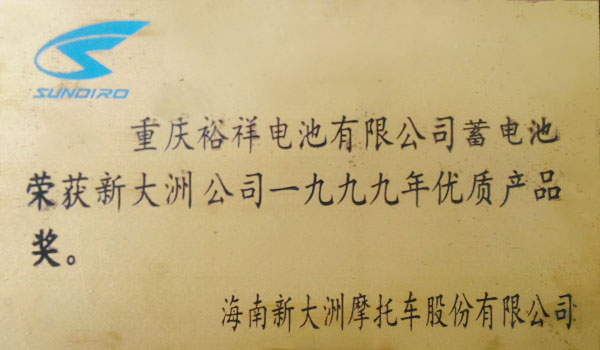 SUNDIRO
重庆裕祥电池有限公司蓄电池
荣获新大洲公司一九九九年优质产品
奖。
海南新大洲摩托车股份有限公司